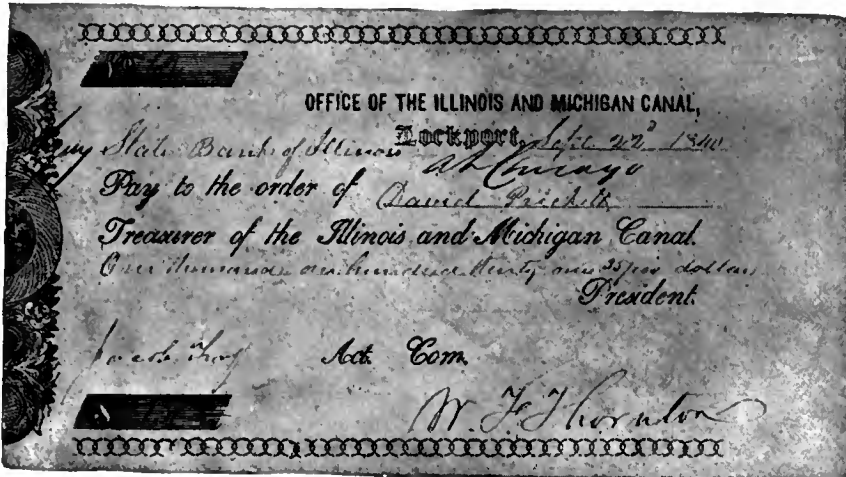 OFFICE OF THE ILLINOIS AND MICHIGAN CANAL,
Lockport, Sept. 22d 1840
State Bank of Illinois
at Chicago
Pay to the order of David Prickett
Treasurer of the Illinois and Michigan Canal.
One thousand one hundred thirty one 25/100 dollars
President.
Jacob Fry Act. Com.
W. F. Thornton